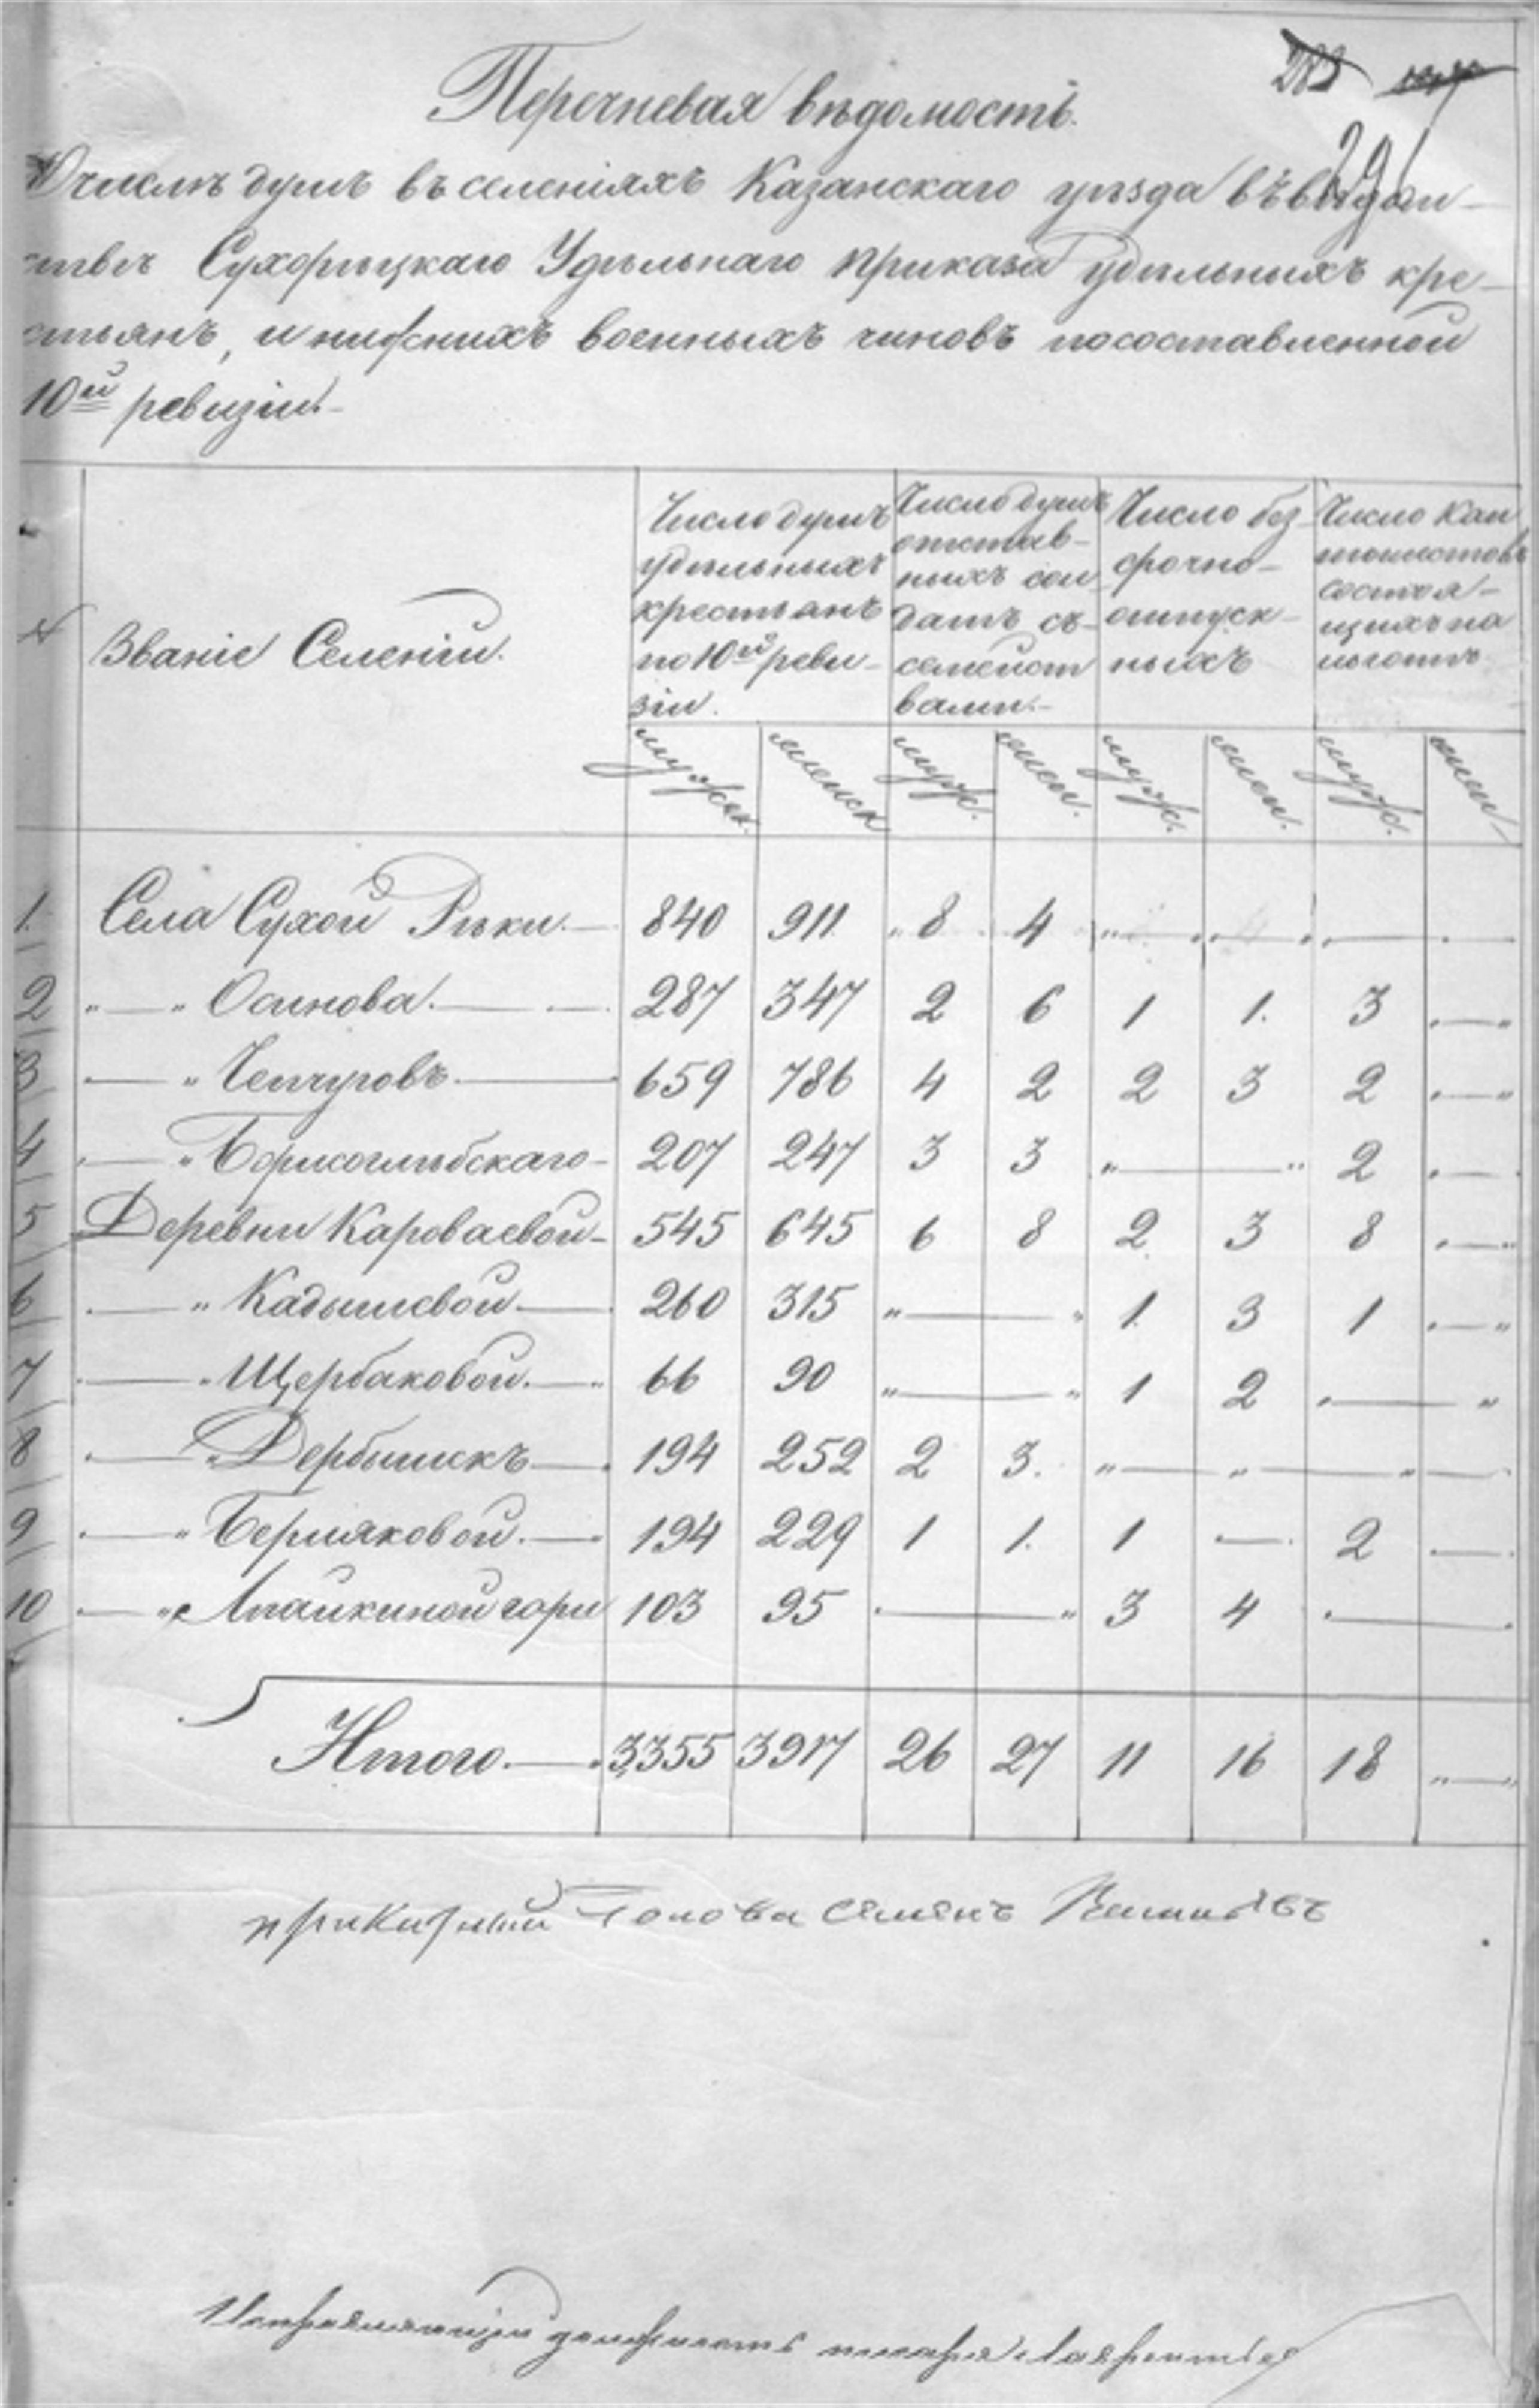 291
Перечневая вѣдомость.
О числѣ душъ въ селеніяхъ Казанскаго уѣзда въ вѣдом-
ствѣ Сухорѣцкаго Удѣльнаго приказа удѣльныхъ кре-
стьянъ, и нижнихъ военныхъ чиновъ по составленной
10й ревизіи.
№ Званіе Селеній. Число душъ удѣльныхъ крестьянъ по 10й ревизіи. Число душъ отставныхъ солдатъ съ семействами. Число безсрочно-отпускныхъ Число кантонистовъ состоящихъ на льготѣ
мужск. женск муж. жен. муж. жен. муж. жен.
1. Села Сухой Рѣки. — 840 911 " 8 4 " — " — " — " —
2 " — " Осинова. — 287 347 2 6 1 1. 3 " — "
3 — " Чепчуговъ. — 659 786 4 2 2 3 2 " — "
4 — " Борисоглѣбскаго — 207 247 3 3 " — " 2 " —
5 Деревни Караваевой — 545 645 6 8 2 3 8 " — "
6 — " Кадышевой — 260 315 " — " 1. 3 1 " — "
7 — " Щербаковой. — " 66 90 " — " 1 2 " — "
8 — " Дербышкъ — 194 252 2 3. " — " — " —
9 — " Берляковой. — 194 229 1 1. 1 — 2 —
10 — " Апайкиной гари 103 95 — " 3 4 —
Итого. — 3355 3917 26 27 11 16 18 " — "
приказный Голова Семенъ
Исправляющій должность писаря Лаврентьев